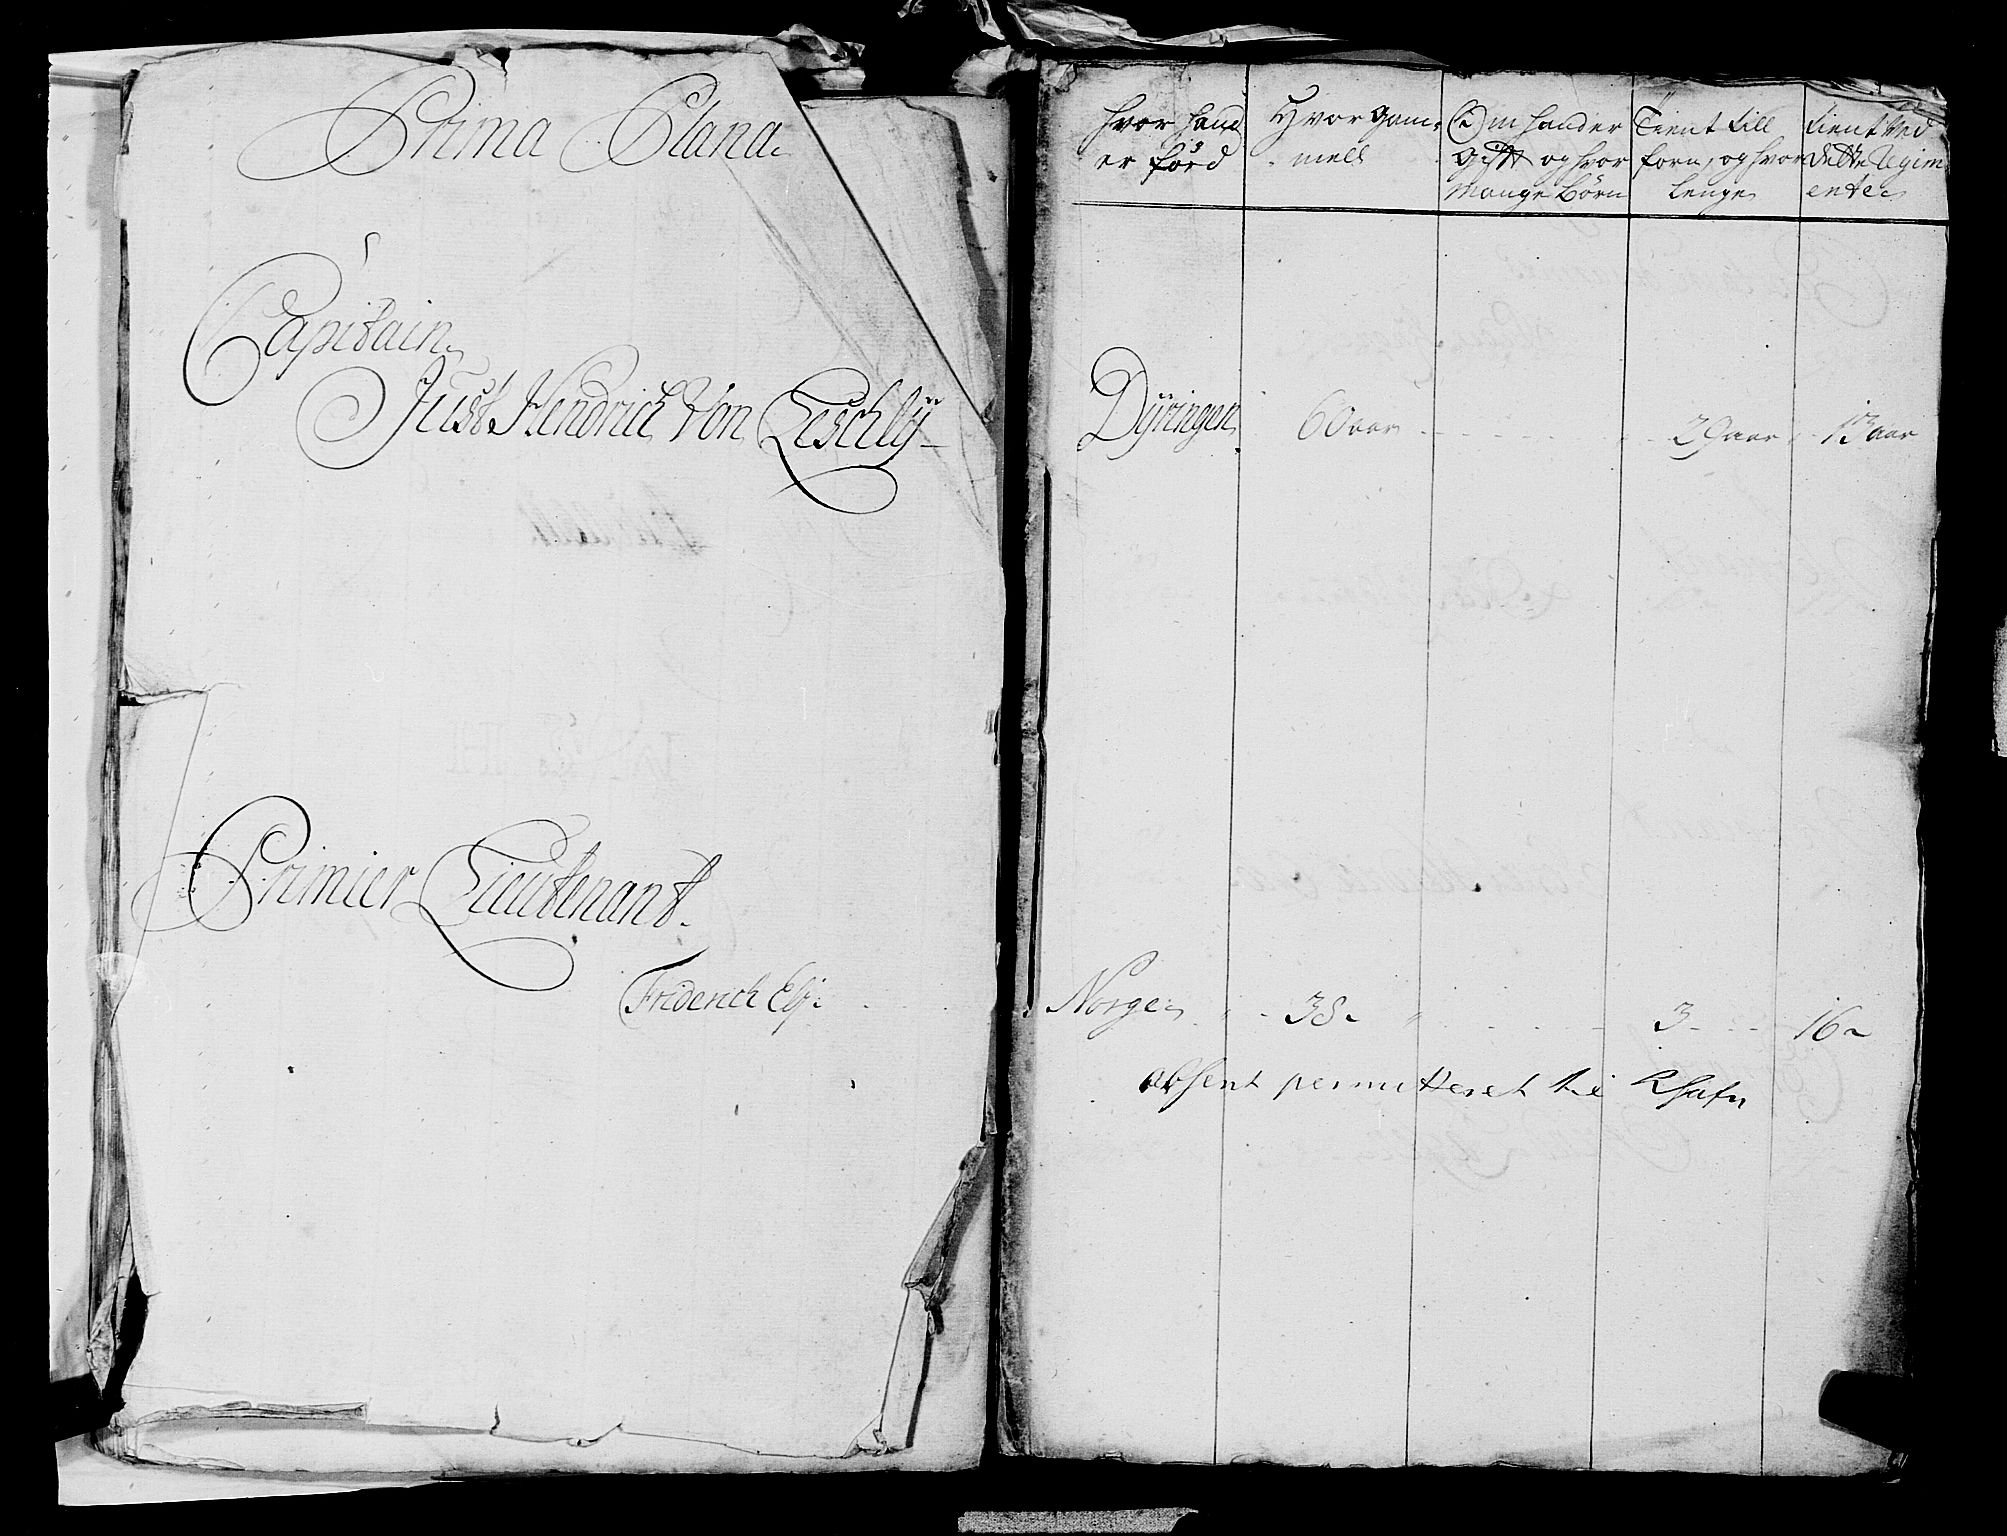 Prima Plana
Capitain
Just Hendrich Von Leschlÿ
Primier Lieutenant.
Friderich Elÿ
hvor hand er föed
Hvor gam- mell
Om hand er gift og hvor Mange Børn
Tient till forn, og hvor lenge
tient Ved dette Regim ente
Dÿringen 60 aar 29 aar 13 aar
Norge 38 3 16
absent permitteret til Khafn